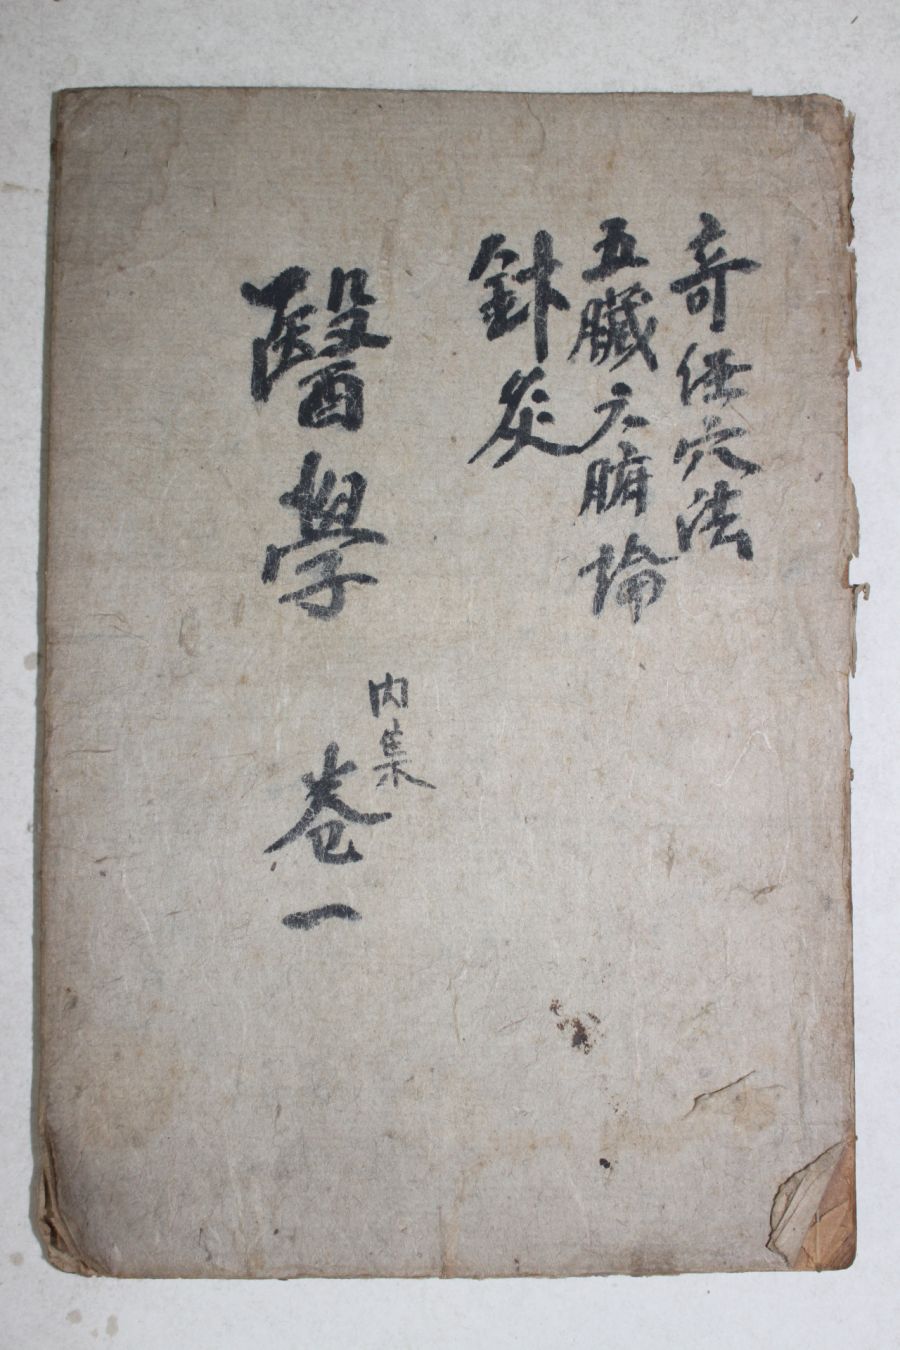 奇經穴法
五臟六腑論
針灸
醫學
內集
卷一